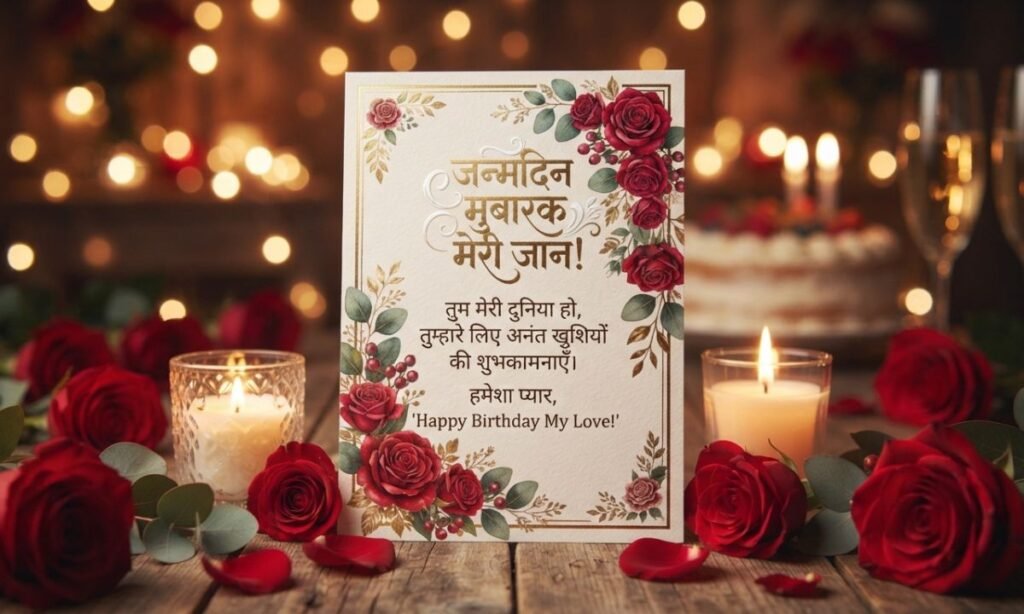 जन्मदिन
मुबारक
मेरी जान!
तुम मेरी दुनिया हो,
तुम्हारे लिए अनंत खुशियों
की शुभकामनाएँ।
हमेशा प्यार,
'Happy Birthday My Love!'